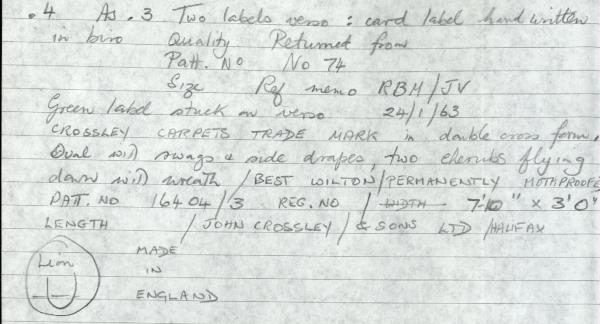 .4 As .3 Two labels verso : card label handwritten
in biro Quality Returned from
Patt. No No 74
Size Ref memo RBM/JV
Green label stuck on verso 24/1/63
CROSSLEY CARPETS TRADE MARK in double cross form,
Oval with swags & side drapes, two cherubs flying
down with wreath /BEST WILTON/PERMANENTLY MOTHPROOFE
PATT. NO 16404/3 REG. NO / WIDTH 7'10" x 3'0"
LENGTH / JOHN CROSSLEY / & SONS LTD /HALIFAX
Lion MADE
IN
ENGLAND